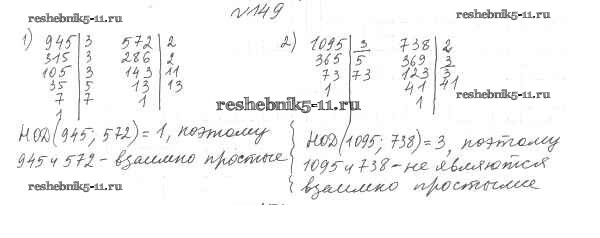 №149
reshebnik5-11.ru
reshebnik5-11.ru
1) 945 | 3 572 | 2
315 | 3 286 | 2
105 | 3 143 | 11
35 | 5 13 | 13
7 | 7 1
1
2) 1095 | 3 738 | 2
365 | 5 369 | 3
73 | 73 123 | 3
1 41 | 41
1
reshebnik5-11.ru
reshebnik5-11.ru
НОД(945; 572) = 1, поэтому
945 и 572 - взаимно простые
reshebnik5-11.ru
НОД(1095; 738) = 3, поэтому
1095 и 738 - не являются
взаимно простыми
reshebnik5-11.ru